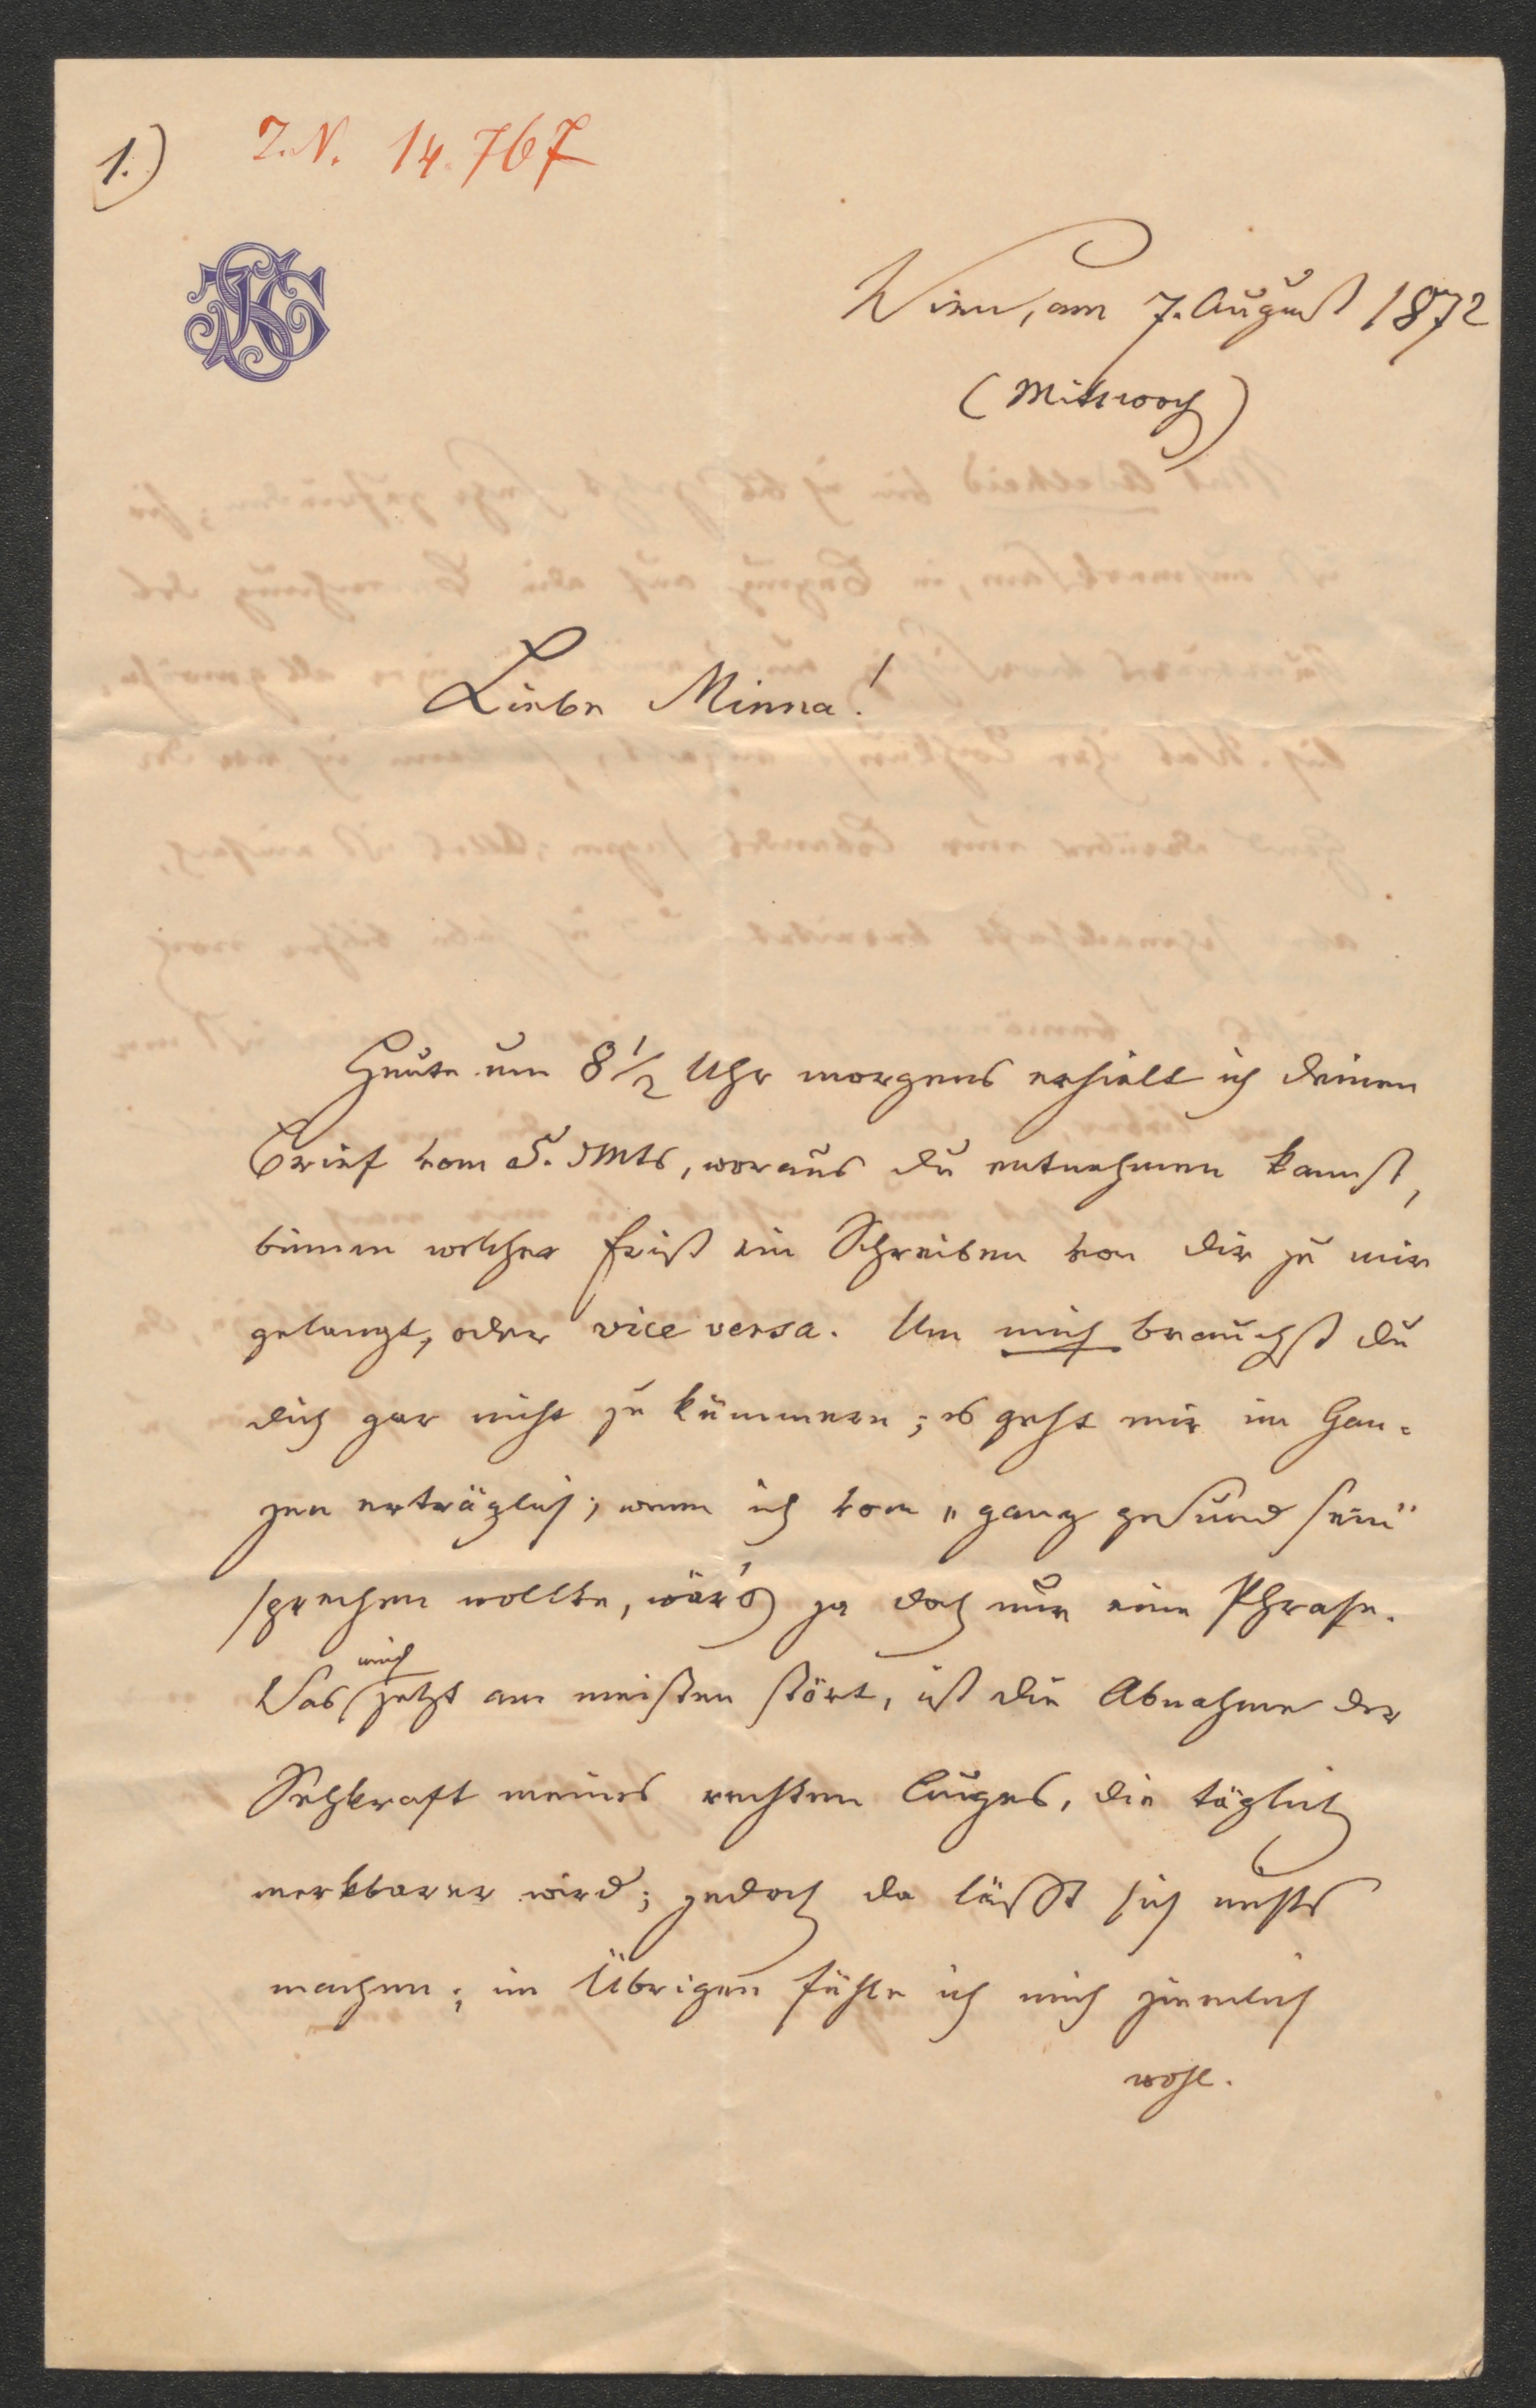 1.)
I.N. 14.767
Wien, am 7. August 1872
(Mittwoch)
Liebe Minna!
Heute um 8 1/2 Uhr morgens erhielt ich deinen
Brief vom 5. dMts, woraus du entnehmen kannst,
binnen welcher Frist ein Schreiben von dir zu mir
gelangt, oder vice versa. Um mich brauchst du
dich gar nicht zu kümmern; es geht mir im Gan-
zen erträglich; wenn ich vom „ganz gesund sein"
sprechen wollte, wär's ja doch nur eine Phrase.
Was mich jetzt am meisten stört, ist die Abnahme der
Sehkraft meines rechten Auges, die täglich
merkbarer wird; jedoch da lässt sich nichts
machen; im Übrigen fühle ich mich ziemlich
wohl.